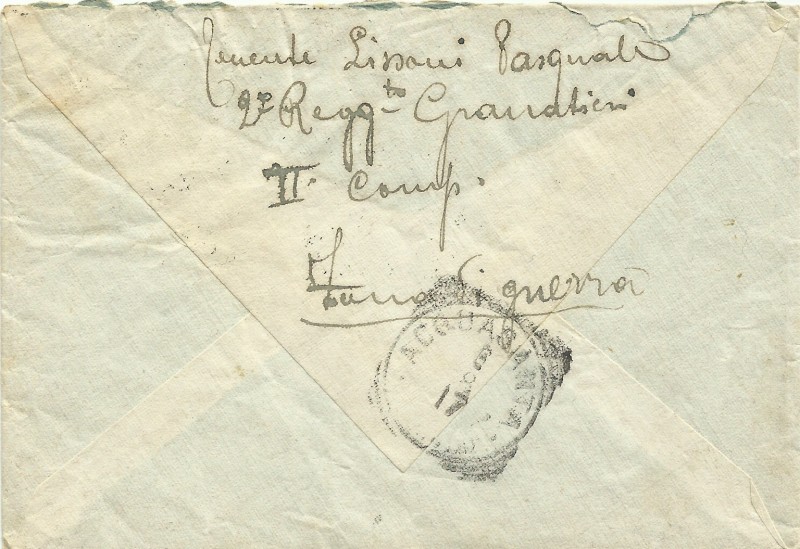 Tenente Lissoni Pasquale
2º Regg-to Granatieri
II. Comp.
Zona di guerra
ACQUASANTA